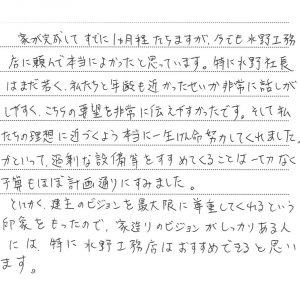 家が完成して すでに1ヵ月程たちますが、今でも水野工務
店に頼んで本当によかったと思っています。特に水野社長
はまだ若く、私たちと年齢も近かったせいか非常に話しが
しやすく、こちらの要望を非常に伝えやすかったです。そして私
たちの理想に近づくよう本当に一生けん命努力してくれました。
かといって、過剰な設備等をすすめてくることは一切なく
予算もほぼ計画通りにすみました。
とにかく、建主のビジョンを最大限に尊重してくれるという
印象をもったので、家造りのビジョンがしっかりある人
には、特に水野工務店はおすすめできると思い
ます。